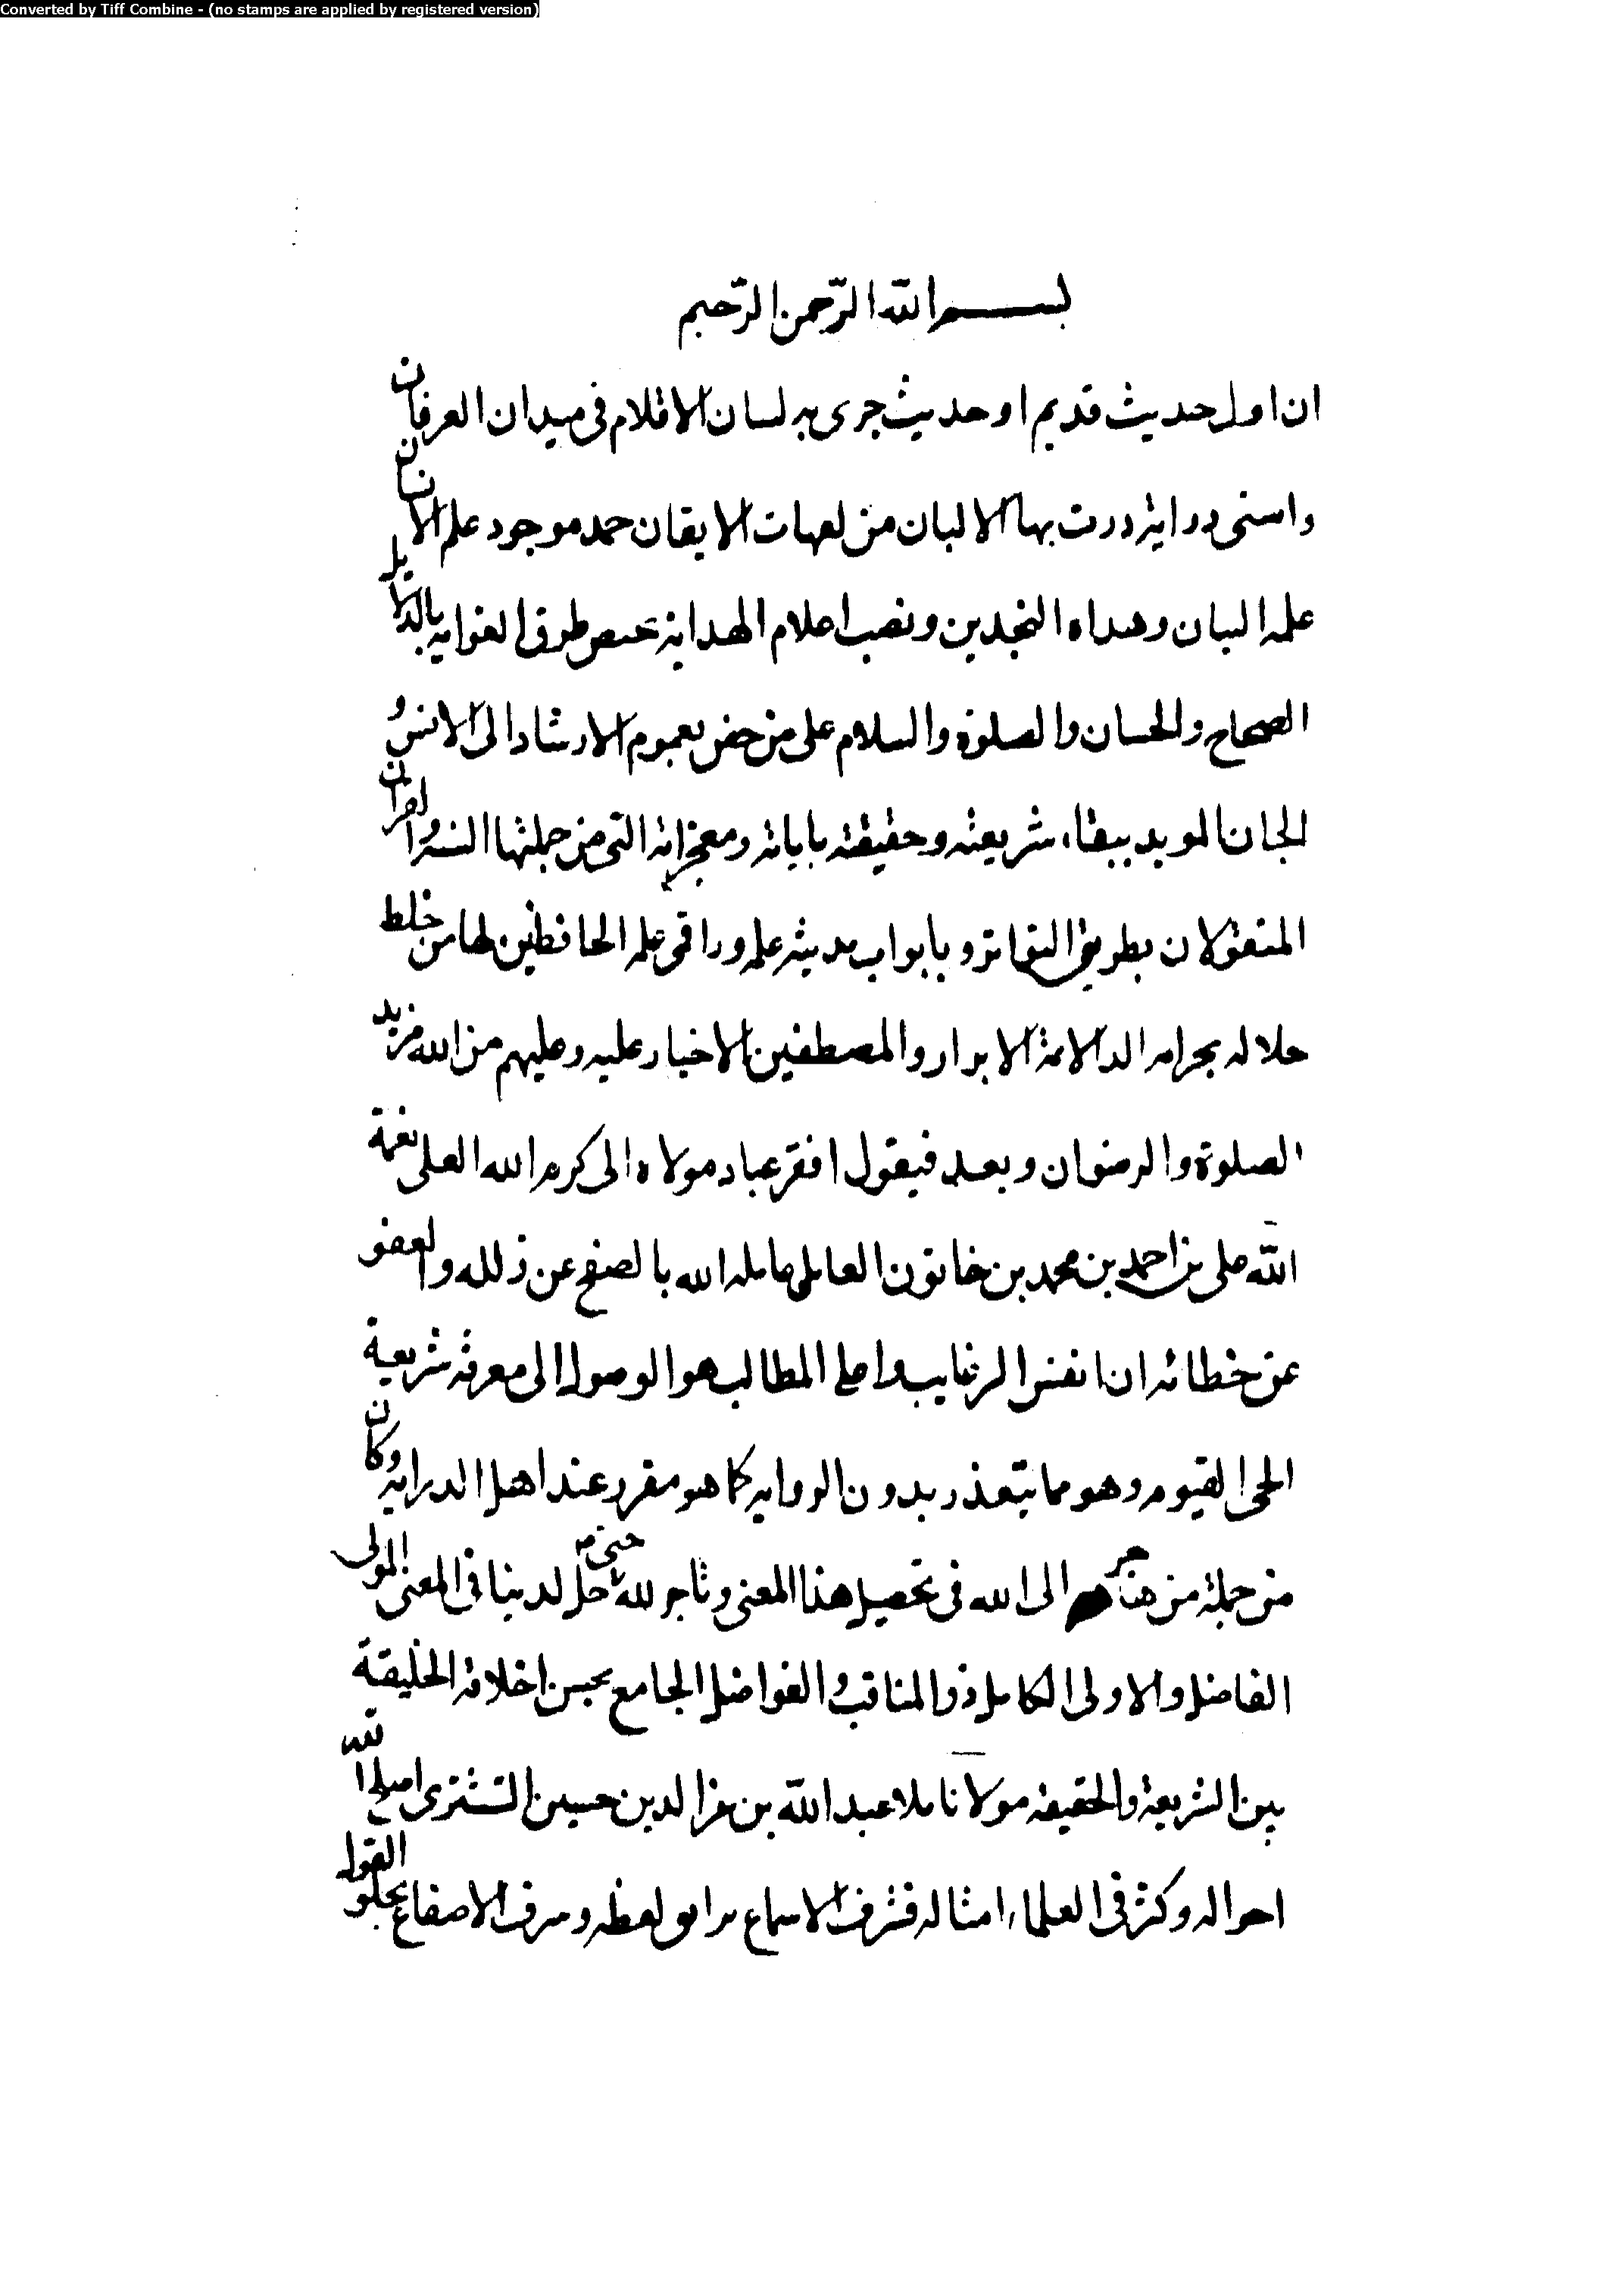 Converted by Tiff Combine - (no stamps are applied by registered version)
بسم الله الرحمن الرحيم
ان اول حديث قديم او حديث جرى به لسان الاقلام فى ميدان العرفان
واسنى دراية درت بها الالبان من لهات الايقان حمد موجود علم الانسان
علمه البيان وهداه النجدين ونصب اعلام الهداية طرق الغواية بالدلايل
الصحاح والحسان والصلوة والسلام على من خص بعموم الارشاد الى الانس و
الجان المويد ببقاء شريعته وحقيقته باياته ومعجزاته التى من جملتها السنة والقران
المنقولان بطريق التواتر وبابواب مدينة علمه وراقى علمه الحافظين لها من خلط
حلاله بحرامه الائمة الابرار والمصطفين الاخيار عليه وعليهم من الله مزيد
الصلوة والرضوان وبعد فيقول افقر عباد مولاه الى كرم الله العلى نعمة
الله على بن احمد بن محمد بن خاتون العاملى عامله الله بالصفح عن زلله والعفو
عن خطائه ان انفس الرغايب واعلى المطالب هو الوصول الى معرفة شريعة
الحى القيوم وهو مما يتعذر بدون الرواية كما هو مقرر عند اهل الدراية وكان
من جملة من هاجر الى الله فى تحصيل هذا المعنى وتاجر لله حتى حل لدينا فى المعنى المولى
الفاضل والاولى الكامل ذو المناقب و الفواضل الجامع بحسن اخلاقه الخليقة
بين الشريعة والحقيقة مولانا ملا عبد الله بن عز الدين حسين التشترى اصلح الله
احواله وكثر فى العلماء امثاله فشرف الاسماع لفظه الاصقاع بحلو القول